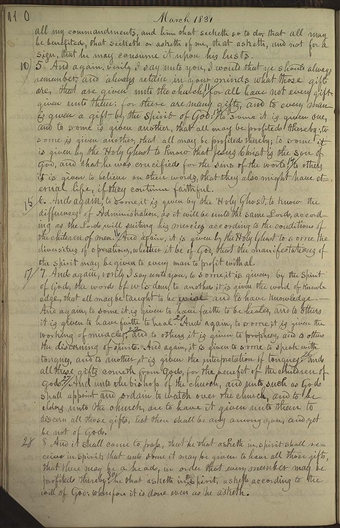 110
March 1831
all my commandments, and him that seeketh so to do that all may
be benefited, that seeketh or asketh of me, that asketh, and not for a
sign, that he may consume it upon his lusts.
10/ 5. And again verily I say unto you, I would that ye should always
remember, and always retain in your minds what those gifts
are, that are given unto the church, for all have not every gift
given unto them: for there are many gifts, and to every man
is given a gift by the Spirit of God: To some it is given one,
and to some is given another, that all may be profited thereby: to
some is given another, that all may be profited thereby; to some it
is given by the Holy Ghost to know that Jesus Christ is the son of
God, and that he was crucified for the sins of the world; to others
it is given to believe on their words, that they also might have et-
ernal life, if they continue faithful.
15 6. And again, to some it is given by the Holy Ghost, to know the
differences of Administration, as it will be unto the same Lord, accord-
ing as the Lord will suiting his mercies according to the conditions of
the children of men. And again, it is given by the Holy Ghost to some the
diversities of operations, whether it be of God, that the manifestations of
the Spirit may be given to every man to profit withal.
17/ 7. And again, verily I say unto you, to some it is given by the Spirit
of God, the words of wisdom; to another it is given the word of knowle
edge, that all may be taught to be wise and to have knowledge.—
And again to some it is given to have faith to be healed, and to others
it is given to have faith to heal. And again, to some it is given the
working of miracles; and to others it is given to prophesy, and to others
the discerning of spirits. And again, it is given to some to speak with
tongues, and to another it is given the interpretation of tongues; and
all these gifts cometh from God, for the benefit of the children of
God. And unto the bishop of the church, and unto such as God
shall appoint and ordain to watch over the church, and to be
elders unto the church, are to have it given unto them to
discern all those gifts, lest there shall be any among you, and yet
be not of God.
28 8. And it shall come to pass, that he that asketh in spirit shall re-
ceive in spirit; that unto some it may be given to have all those gifts,
that there may be a head, in order that every member may be
profited thereby: he that asketh in spirit, asketh according to the
will of God, wherefore it is done even as he asketh.